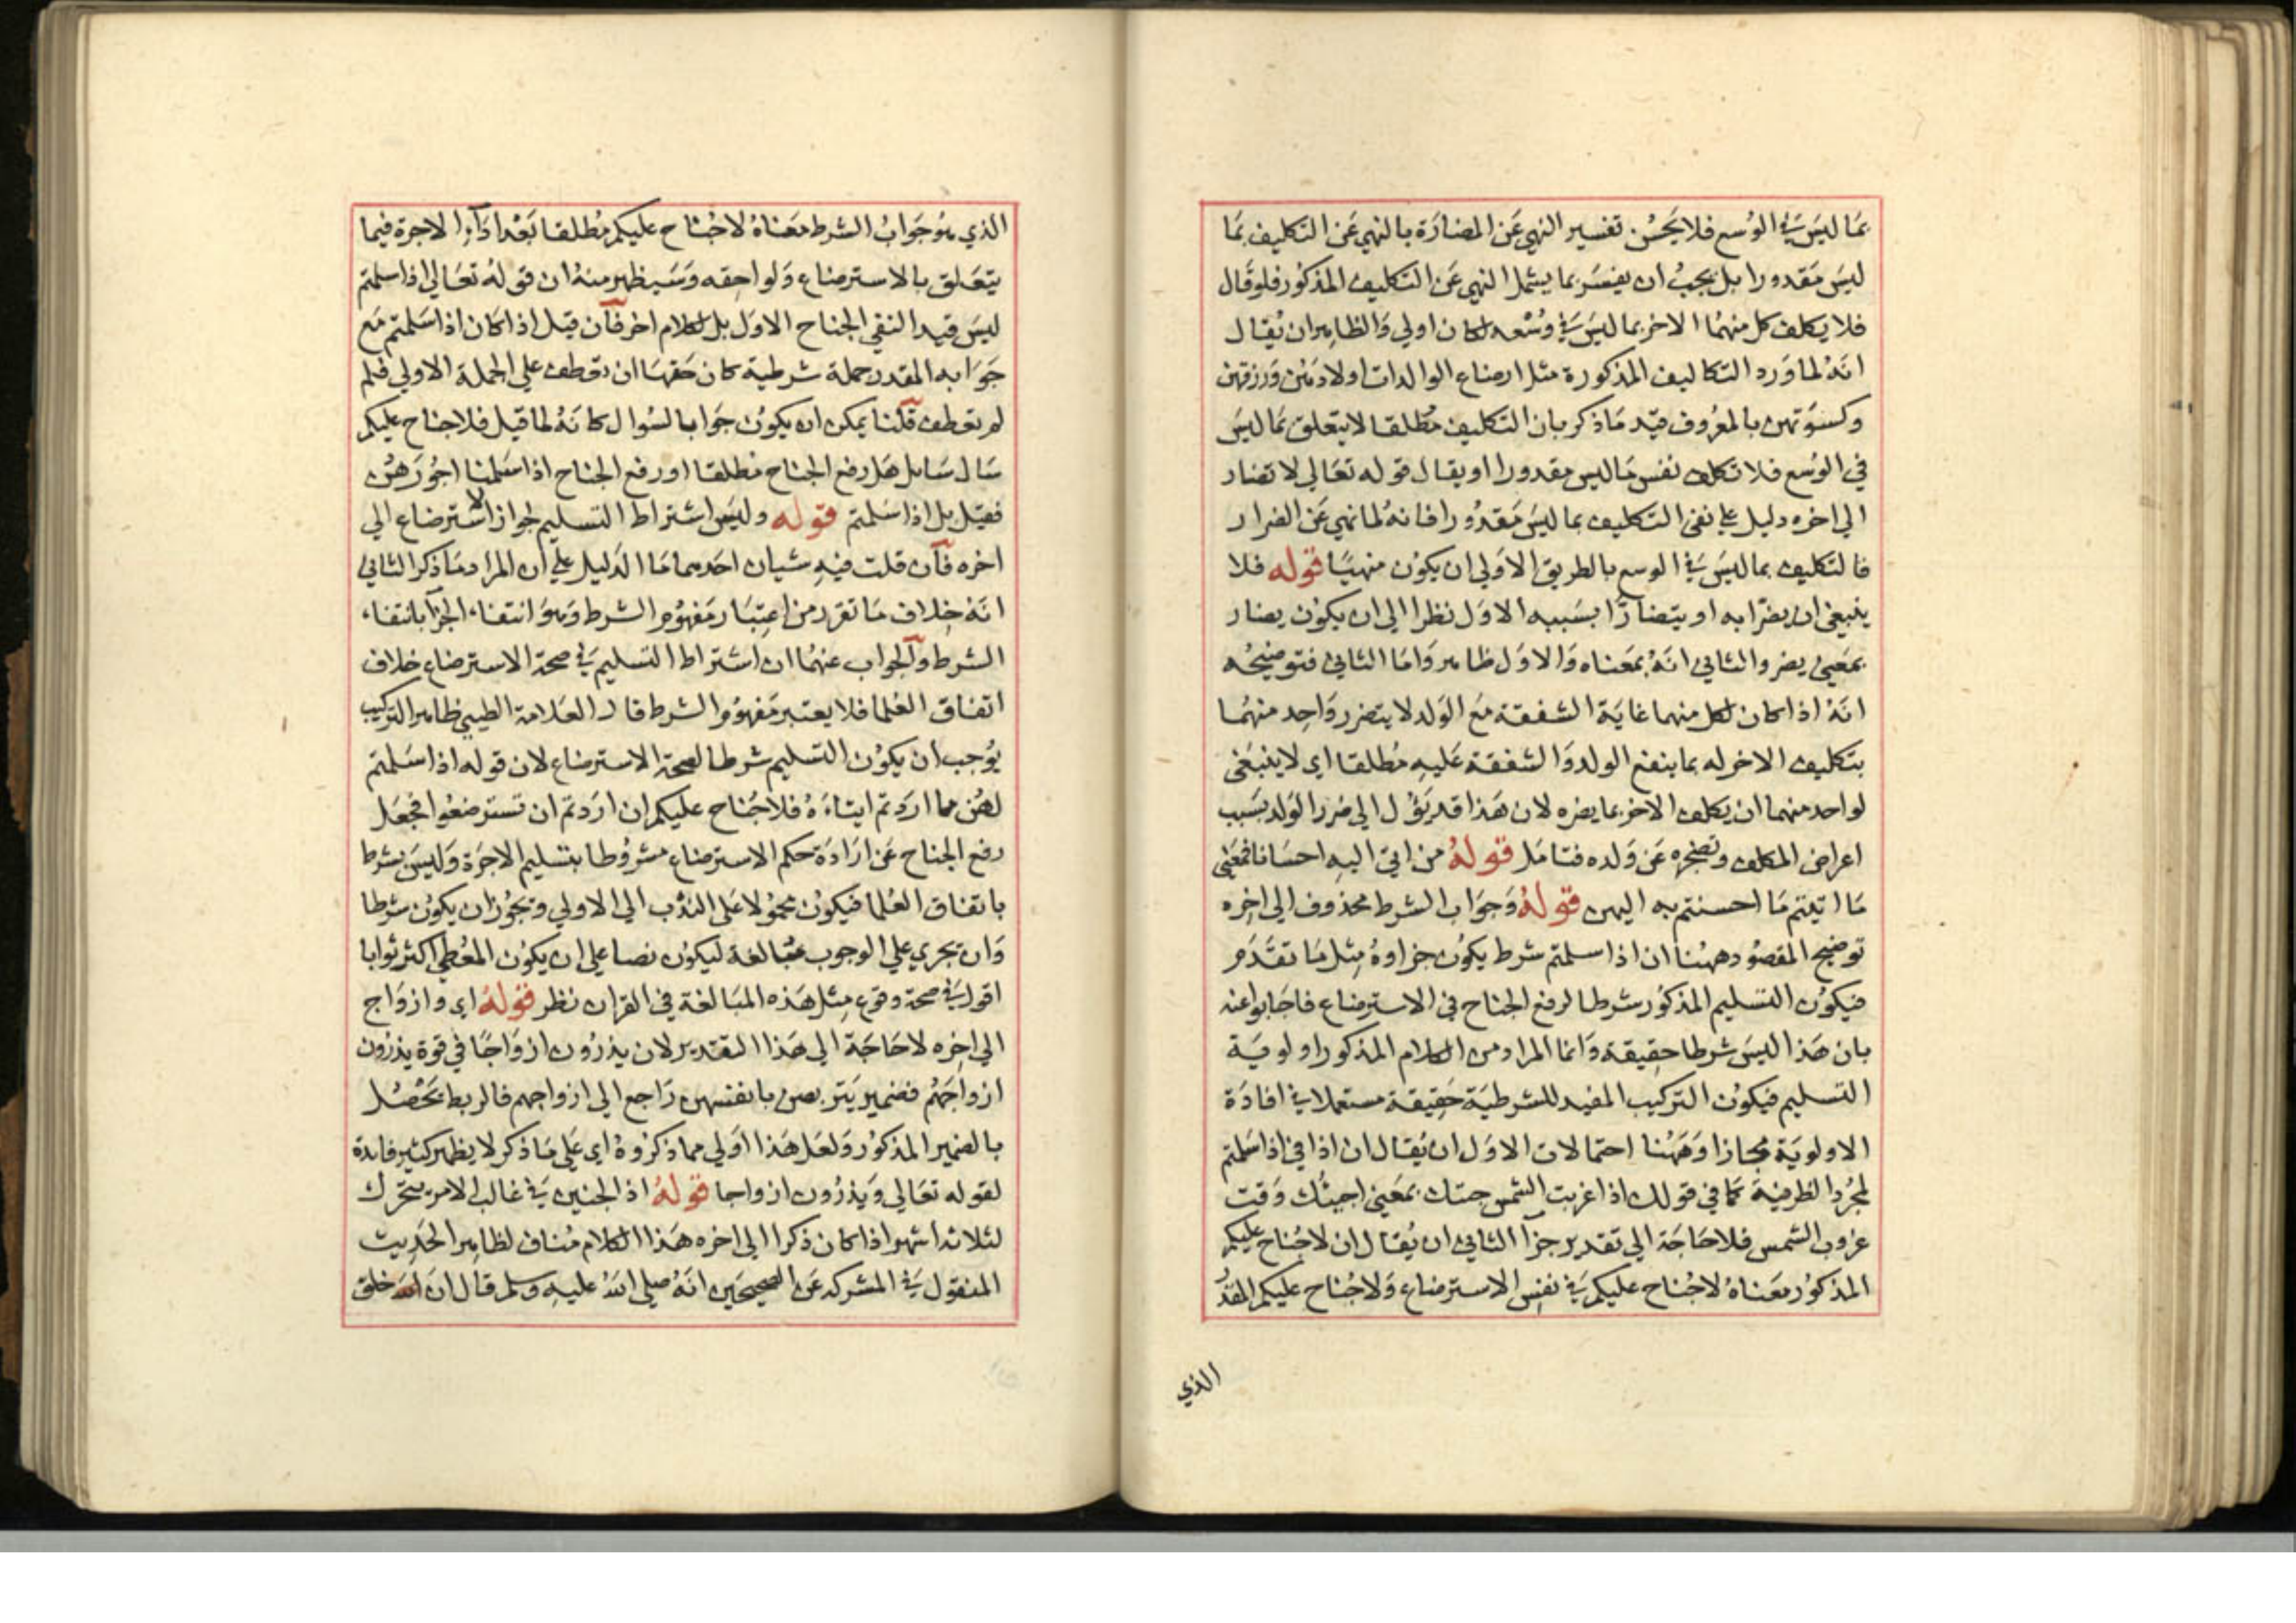 بما ليس في الوسع فلا يحسن تفسير النهي عن المضارة بالنهي عن التكليف بما
ليس مقدورا بل يجب ان يفسر بما يشمل النهي عن التكليف المذكور فلو قال
فلا يكلف كل منهما الاخر بما ليس في وسعه لكان اولي والظاهر ان يقال
انه لما ورد التكاليف المذكورة مثل ارضاع الوالدات اولادهن ورزقهن
وكسوتهن بالمعروف قيد ما ذكر بان التكليف مطلقا لا يتعلق بما ليس
في الوسع فلا تكلف نفس ما ليس مقدورا او يقال قوله تعالي لا تضار
الي اخره دليل علي نفي التكليف بما ليس مقدورا فانه لما نهي عن الضرار
فالتكليف بما ليس في الوسع بالطريق الاولي ان يكون منهيا قوله فلا
ينبغي ان يضرا به او يتضارا بسببه الاول نظرا الي ان يكون يضار
بمعني يضر والثاني انه بمعناه والاول ظاهر واما الثاني فتوضيحه
انه اذا كان لكل منهما غاية الشفقة مع الولد لا يتضرر واحد منهما
بتكليف الاخر له بما ينفع الولد والشفقة عليه مطلقا اي لا ينبغي
لواحد منهما ان يكلف الاخر بما يضره لان هذا قد يؤل الي ضرر الولد بسبب
اعراض المكلف وتضجره عن ولده فتامل قوله من اتي اليه احسانا فمعني
ما اتيتم ما احسنتم به اليهن قوله وجواب الشرط محذوف الي اخره
توضيح المقصود ههنا ان اذا سلمتم شرط يكون جزاوه مثل ما تقدم
فيكون التسليم المذكور شرطا لرفع الجناح في الاسترضاع فاجابوا عنه
بان هذا ليس شرطا حقيقة وانما المراد من الكلام المذكور اولوية
التسليم فيكون التركيب المفيد للشرطية حقيقة مستعملا في افادة
الاولوية مجازا وههنا احتمالات الاول ان يقال ان اذا في اذا سلمتم
لمجرد الظرفية كما في قولك اذا غربت الشمس جئتك بمعني اجيئك وقت
غروب الشمس فلا حاجة الي تقدير جزآ الثاني ان يقال ان لا جناح عليكم
المذكور معناه لا جناح عليكم في نفس الاسترضاع ولا جناح عليكم المقدر
الذي
الذي هو جواب الشرط معناه لا جناح عليكم مطلقا بعد ادآء الاجرة فيما
يتعلق بالاسترضاع ولواحقه وسيظهر منه ان قوله تعالي اذا سلمتم
ليس قيد النفي الجناح الاول بل لكلام اخر فآن قيل اذا كان اذا سلمتم مع
جوابه المقدر جملة شرطية كان حقها ان تعطف علي الجملة الاولي فلم
لم تعطف قلنا يمكن ان يكون جوابا لسوال كانه لما قيل فلا جناح عليكم
سال سايل هل رفع الجناح مطلقا او رفع الجناح اذا سلمنا اجورهن
فقيل بل اذا سلمتم قوله وليس اشتراط التسليم لجواز الاسترضاع الي
اخره فآن قلت فيه شيان احدهما ما الدليل علي ان المراد ما ذكر الثاني
انه خلاف ما تقرر من اعتبار مفهوم الشرط وهو انتفاء الجزآ بانتفاء
الشرط وآلجواب عنهما ان اشتراط التسليم في صحة الاسترضاع خلاف
اتفاق العلما فلا يعتبر مفهوم الشرط قال العلامة الطيبي ظاهر التركيب
يوجب ان يكون التسليم شرطا لصحة الاسترضاع لان قوله اذا سلمتم
لهن ما اردتم ايتاءه فلا جناح عليكم ان اردتم ان تسترضعوا فجعل
رفع الجناح عن ارادة حكم الاسترضاع مشروطا بتسليم الاجرة وليس بشرط
باتفاق العلما فيكون محمولا علي الندب الي الاولي ويجوز ان يكون شرطا
وان تجري علي الوجوب مبالغة ليكون نصا علي ان يكون المعطي اكثر ثوابا
اقول في صحة وقوع مثل هذه المبالغة في القران نظر قوله اي وازواج
الي اخره لا حاجة الي هذا التقدير لان يذرون ازواجا في قوة يذرون
ازواجهم فضمير يتربصن بانفسهن راجع الي ازواجهم فالربط يحصل
بالضمير المذكور ولعل هذا اولي مما ذكروه اي علي ما ذكر لا يظهر كثير فايدة
لقوله تعالي ويذرون ازواجا قوله اذ الجنين في غالب الامر يتحرك
لثلاثة اشهر اذا كان ذكرا الي اخره هذا الكلام مناف لظاهر الحديث
المنقول في المشركه عن الصحيحين انه صلي الله عليه وسلم قال ان الله خلق